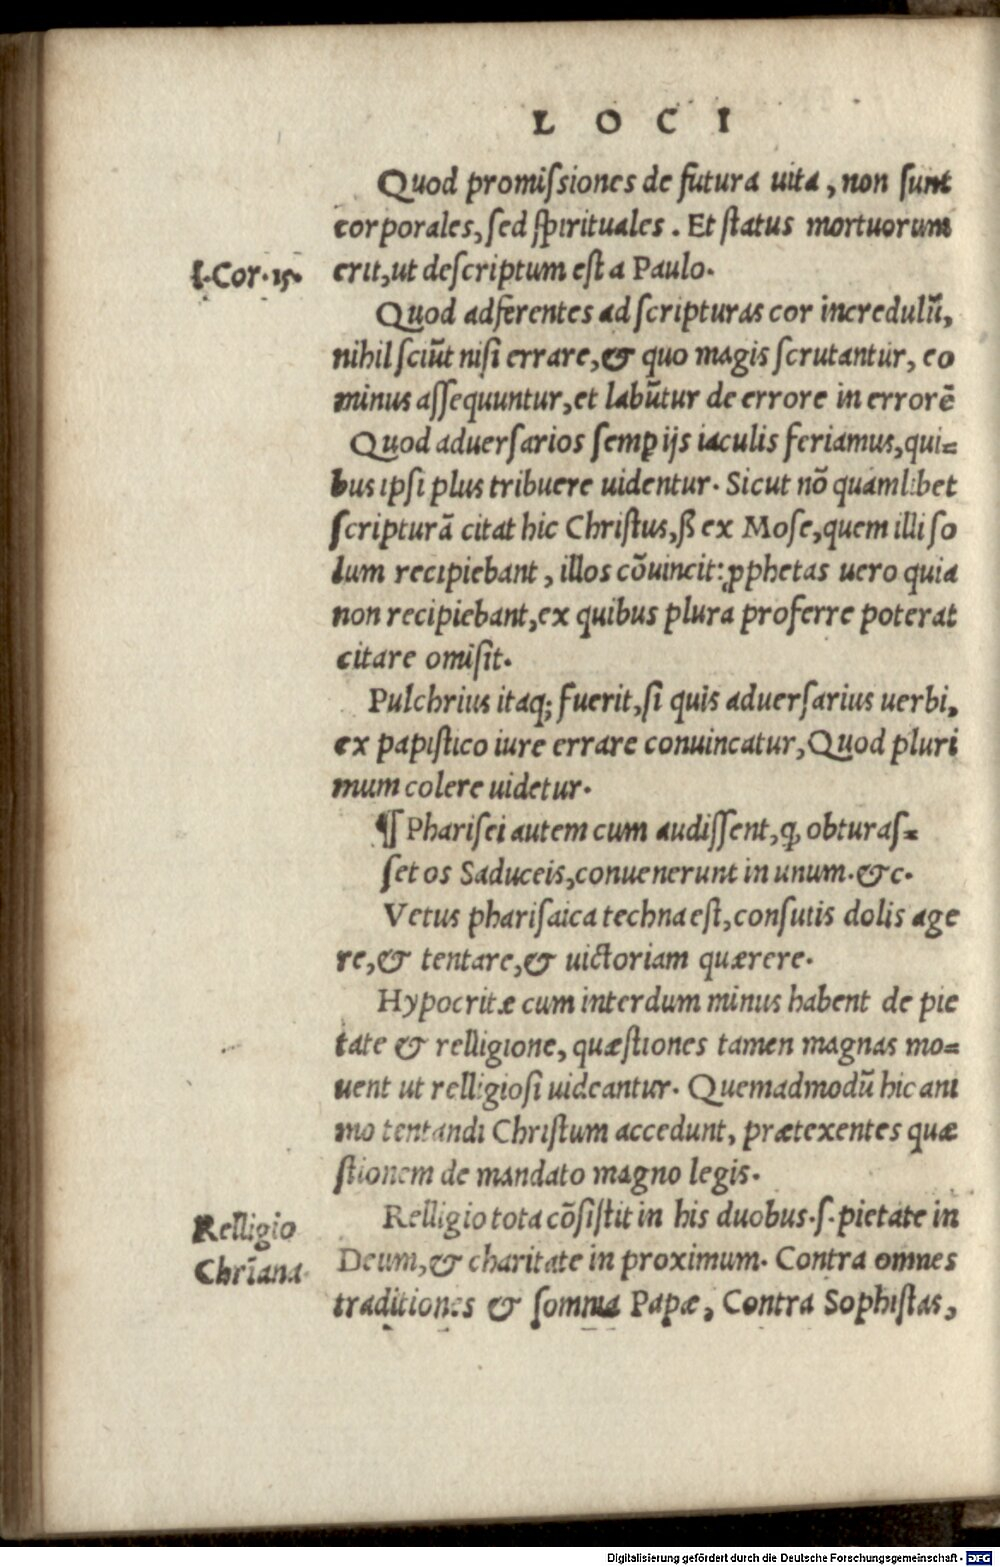 LOCI
Quod promiſsiones de futura uita, non ſunt
corporales, ſed ſpirituales. Et ſtatus mortuorum
I. Cor. 15. erit, ut deſcriptum eſt a Paulo.
Quod adferentes ad ſcripturas cor incredulū,
nihil ſciūt niſi errare, & quo magis ſcrutantur, eo
minus aſſequuntur, et labūtur de errore in errorē
Quod aduerſarios ſemꝑ ijs iaculis feriamus, qui=
bus ipſi plus tribuere uidentur. Sicut nō quamlibet
ſcripturā citat hic Chriſtus, ß ex Moſe, quem illi ſo
lum recipiebant, illos cōuincit: ꝓphetas uero quia
non recipiebant, ex quibus plura proferre poterat
citare omiſit.
Pulchrius itaq; fuerit, ſi quis aduerſarius uerbi,
ex papiſtico iure errare conuincatur, Quod pluri
mum colere uidetur.
¶ Phariſei autem cum audiſſent, ꝙ obturaſ=
ſet os Saduceis, conuenerunt in unum. &c.
Vetus phariſaica techna eſt, conſutis dolis age
re, & tentare, & uictoriam quærere.
Hypocritæ cum interdum minus habent de pie
tate & relligione, quæſtiones tamen magnas mo=
uent ut relligioſi uideantur. Quemadmodū hic ani
mo tentandi Chriſtum accedunt, prætexentes quæ
ſtionem de mandato magno legis.
Relligio
Chrīana.
Relligio tota cōſiſtit in his duobus. ſ. pietate in
Deum, & charitate in proximum. Contra omnes
traditiones & ſomnia Papæ, Contra Sophiſtas,
Digitalisierung gefördert durch die Deutsche Forschungsgemeinschaft - DFG